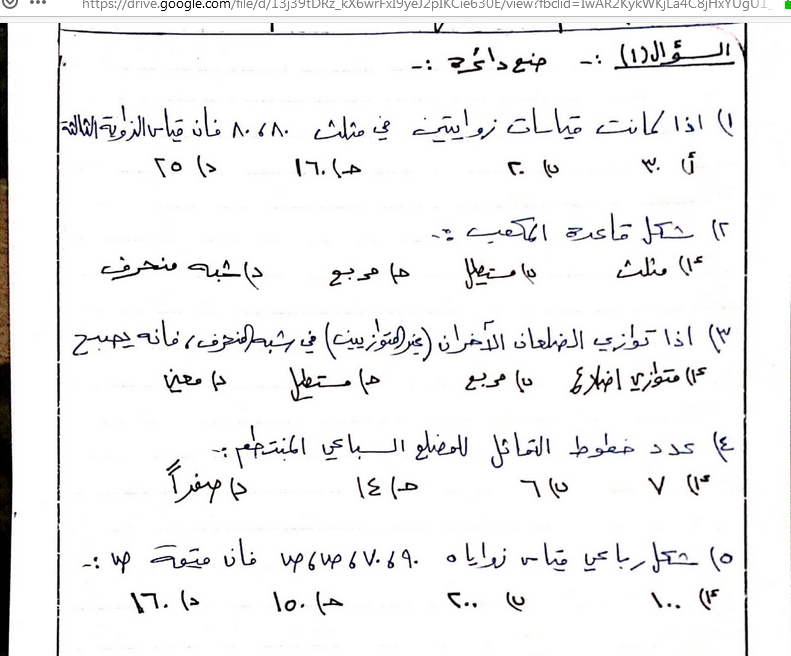 https://drive.google.com/file/d/13j39tDRz_kX6wrFxI9yeJ2pIKCie630E/view?fbclid=IwAR2KykWKjLa4C8jHxYUgU1_
السؤال (١) :- ضع دائرة :-
١) اذا كانت قياسات زوايتين في مثلث ٨٠، ٨٠ فان قياس الزاوية الثالثة
أ) ٣٠ ب) ٢٠ حـ) ١٦٠ د) ٢٥
٢) شكل قاعدة المكعب :-
أ) مثلث ب) مستطيل حـ) مربع د) شبه منحرف
٣) اذا توازي الضلعان الآخران (غير المتوازيين) في شبه المنحرف، فانه يصبح
أ) متوازي اضلاع ب) مربع حـ) مستطيل د) معين
٤) عدد خطوط التماثل للمضلع السباعي المنتظم :-
أ) ٧ ب) ٦ حـ) ١٤ د) صفراً
٥) شكل رباعي قياس زواياه ٩٠، ٧٠، س، س فان قيمة س :-
أ) ١٠٠ ب) ٢٠٠ حـ) ١٥٠ د) ١٦٠